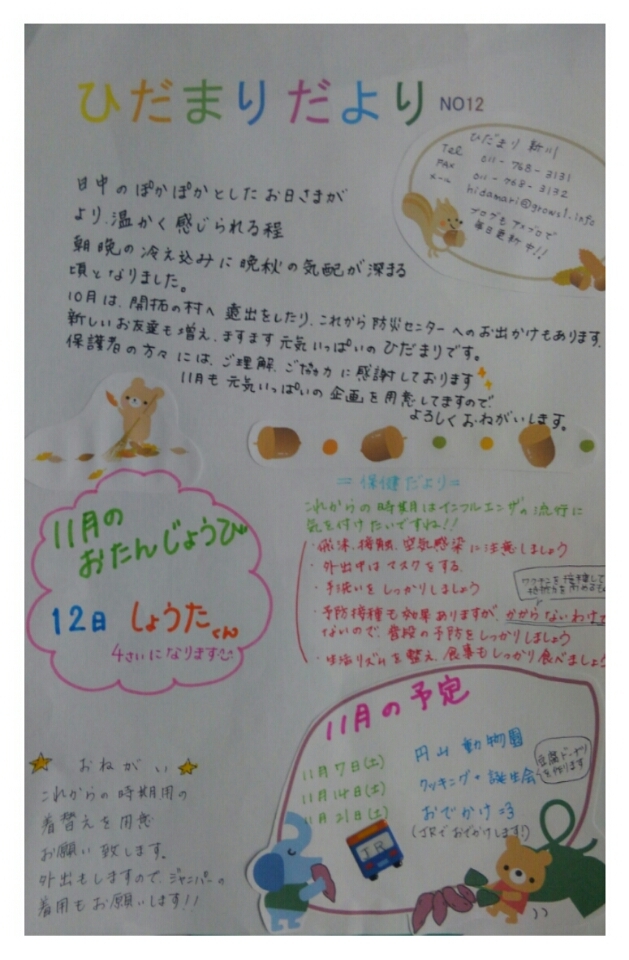 ひだまりだより NO12
ひだまり 新川
TEL 011-768-3131
FAX 011-768-3132
メール hidamari@grows1.info
ブログもアメブロで
毎日更新中!!
日中のぽかぽかとしたお日さまが
より、温かく感じられる程
朝晩の冷え込みに晩秋の気配が深まる
頃となりました。
10月は、開拓の村へ遠出をしたり、これから防災センターへのお出かけもあります。
新しいお友達も増え、ますます元気いっぱいのひだまりです。
保護者の方々には、ご理解、ご協力に感謝しております
11月も元気いっぱいの企画を用意してますので、
よろしくおねがいします。
=保健だより=
これからの時期はインフルエンザの流行に
気を付けたいですね!!
・飛沫、接触、空気感染に注意しましょう
・外出中はマスクをする。
・手洗いをしっかりしましょう
ワクチンを接種して
・予防接種も効果ありますが、かからないわけで
ないので、普段の予防をしっかりしましょう
・生活リズムを整え、食事もしっかり食べましょう
11月の
おたんじょうび
12日 しょうたくん
4さいになります
11月の予定
11月7日(土) 円山動物園
11月14日(土) クッキング・誕生会
豆腐ドーナツ
を作ります
11月21日(土) おでかけ
(JRでおでかけします!)
JR
おねがい
これからの時期用の
着替えを用意
お願い致します。
外出もしますので、ジャンパーの
着用もお願いします!!